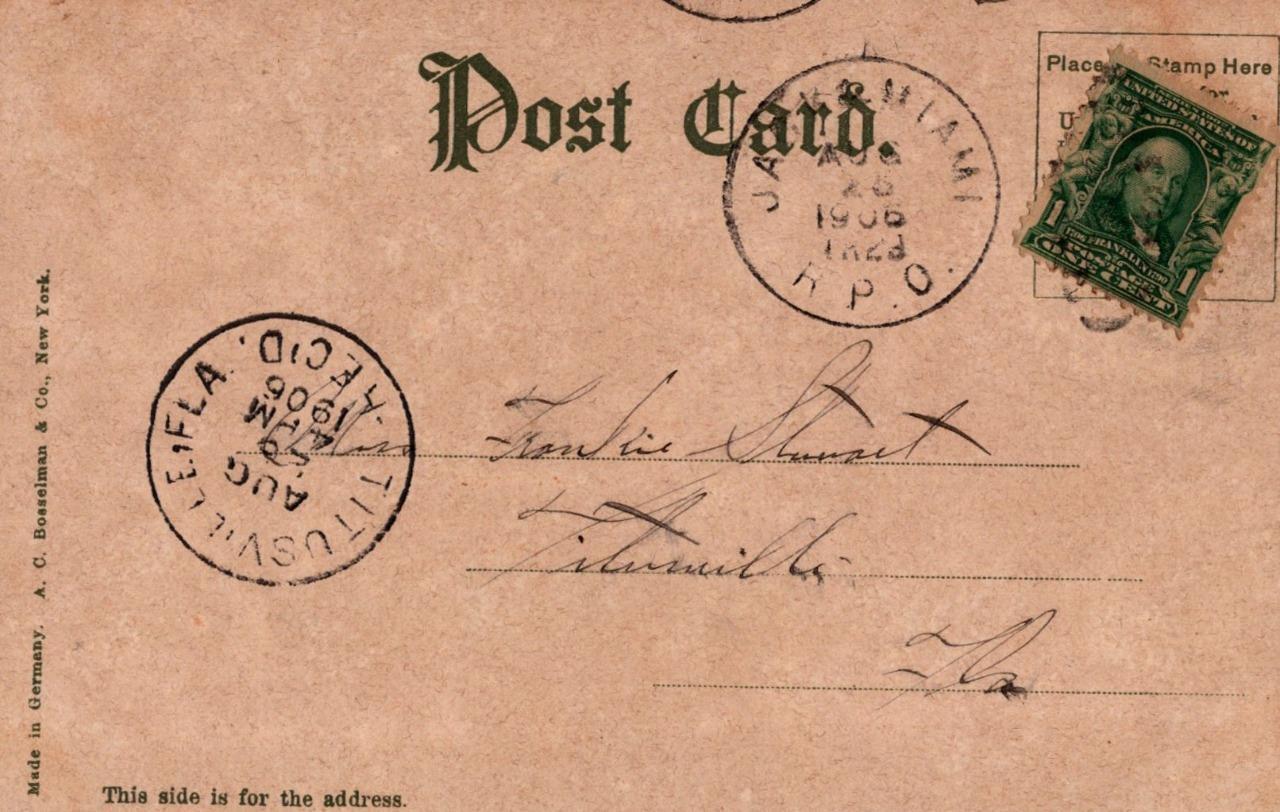 Post Card.
JACK. & MIAMI
AUG
1906
TR23
R.P.O.
Place Stamp Here
for
UNITED STATES OF
AMERICA
1
FRANKLIN
POSTAGE
ONE CENT
1
TITUSVILLE, FLA.
REC'D.
AUG
M
Miss Frankie Stewart
Titusville
Fla
Made in Germany. A. C. Bosselman & Co., New York.
This side is for the address.